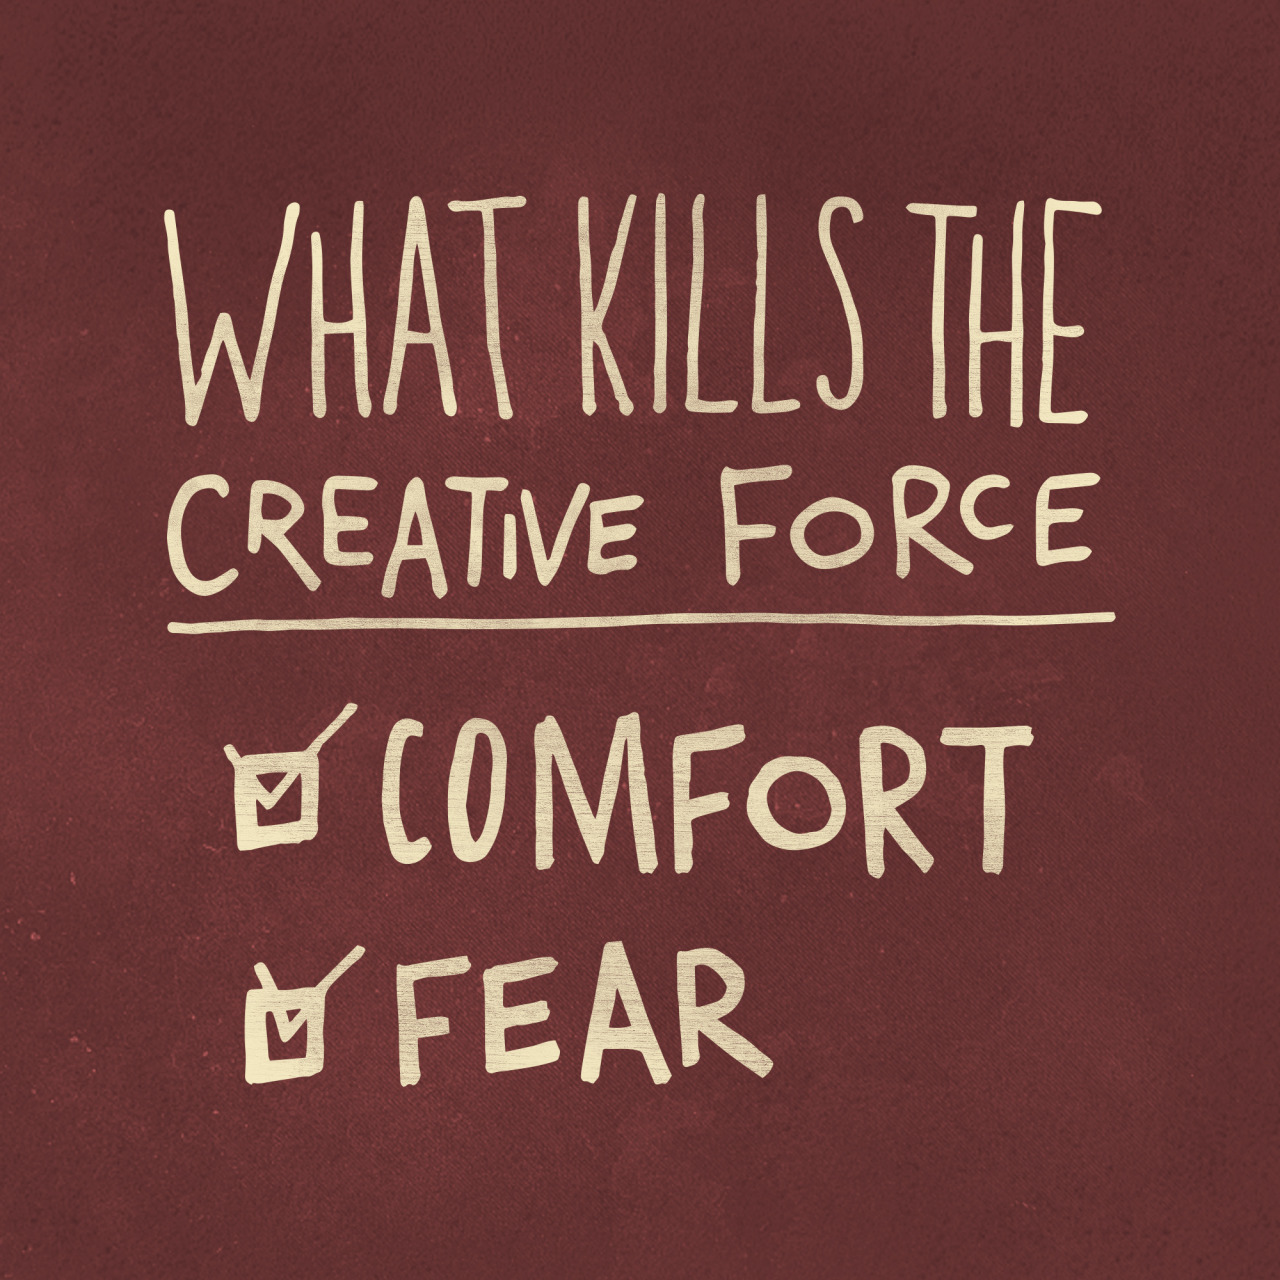 WHAT KILLS THE
CREATIVE FORCE
COMFORT
FEAR